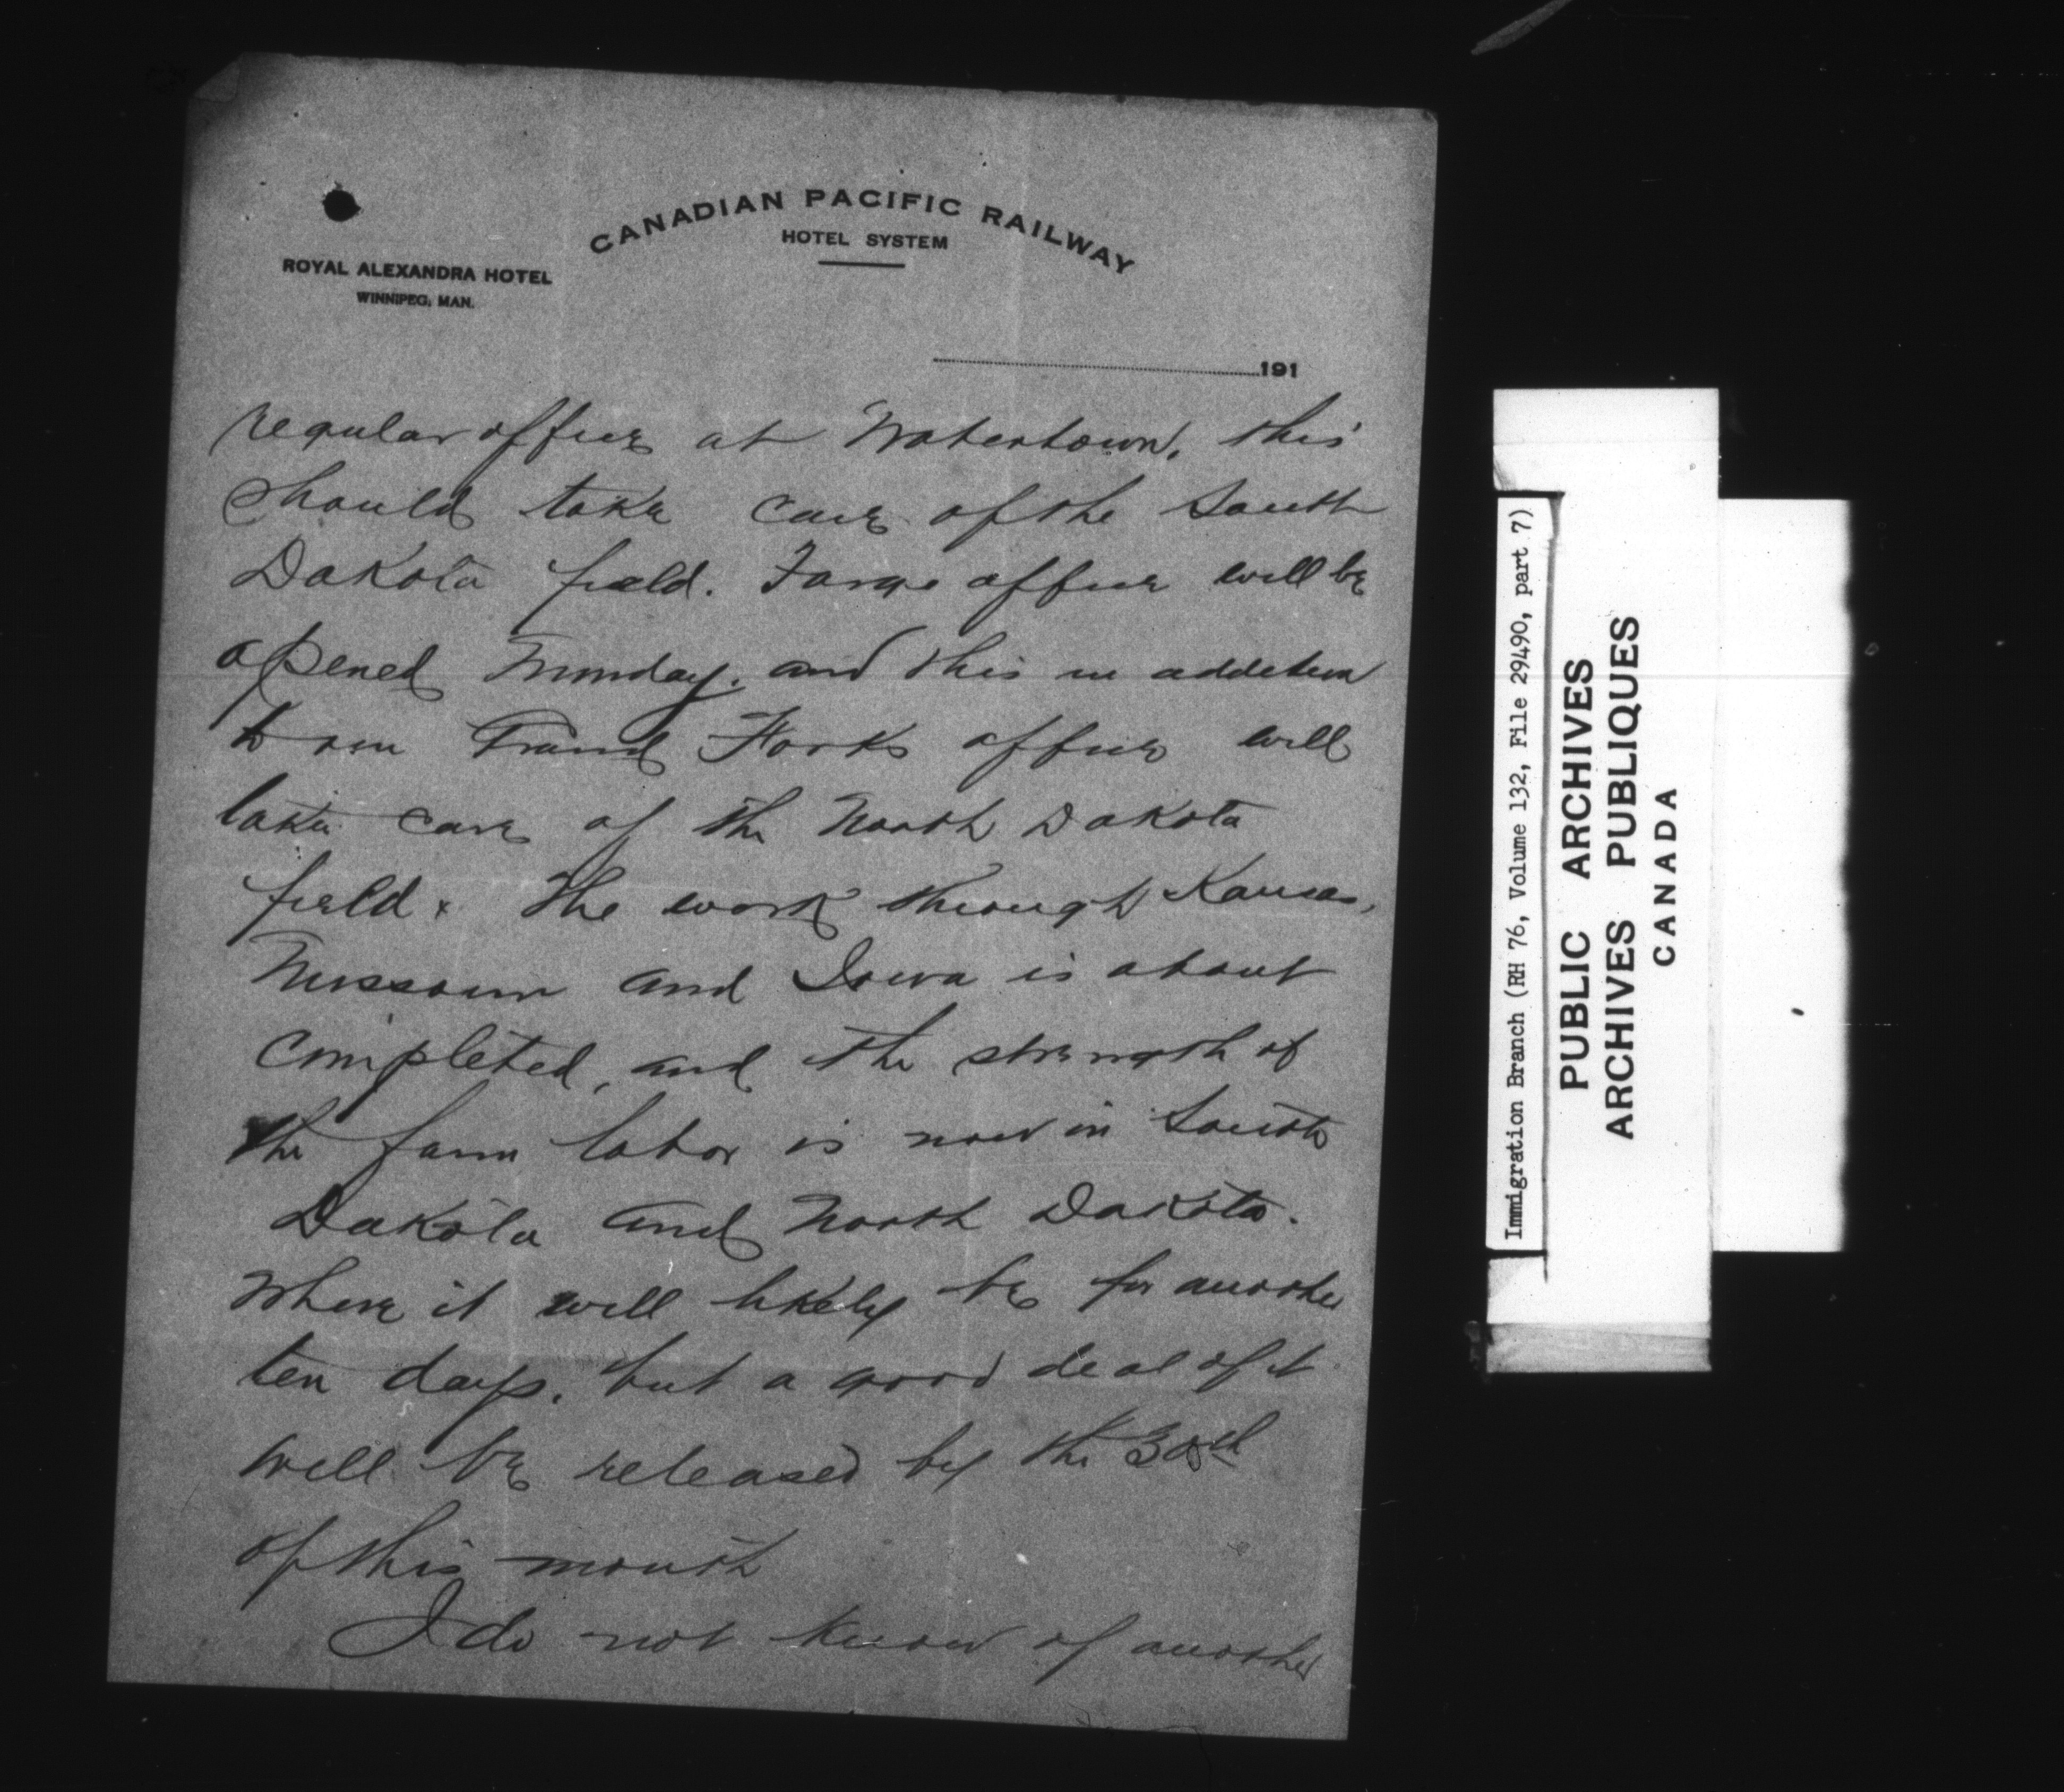 CANADIAN PACIFIC RAILWAY
HOTEL SYSTEM
ROYAL ALEXANDRA HOTEL
WINNIPEG, MAN.
191
regular office at Watertown. this
should take care of the South
Dakota field. Fargo office will be
opened Monday. and this in addition
to our Grand Forks office will
take care of the North Dakota
field. The work through Kansas,
Missouri and Iowa is about
completed, and the strength of
the farm labor is now in South
Dakota and North Dakota.
Where it will likely be for another
ten days. but a good deal of it
will be released by the
of this month
I do not know of another
Immigration Branch (RH 76, Volume 132, File 29490, part 7)
PUBLIC ARCHIVES
ARCHIVES PUBLIQUES
CANADA